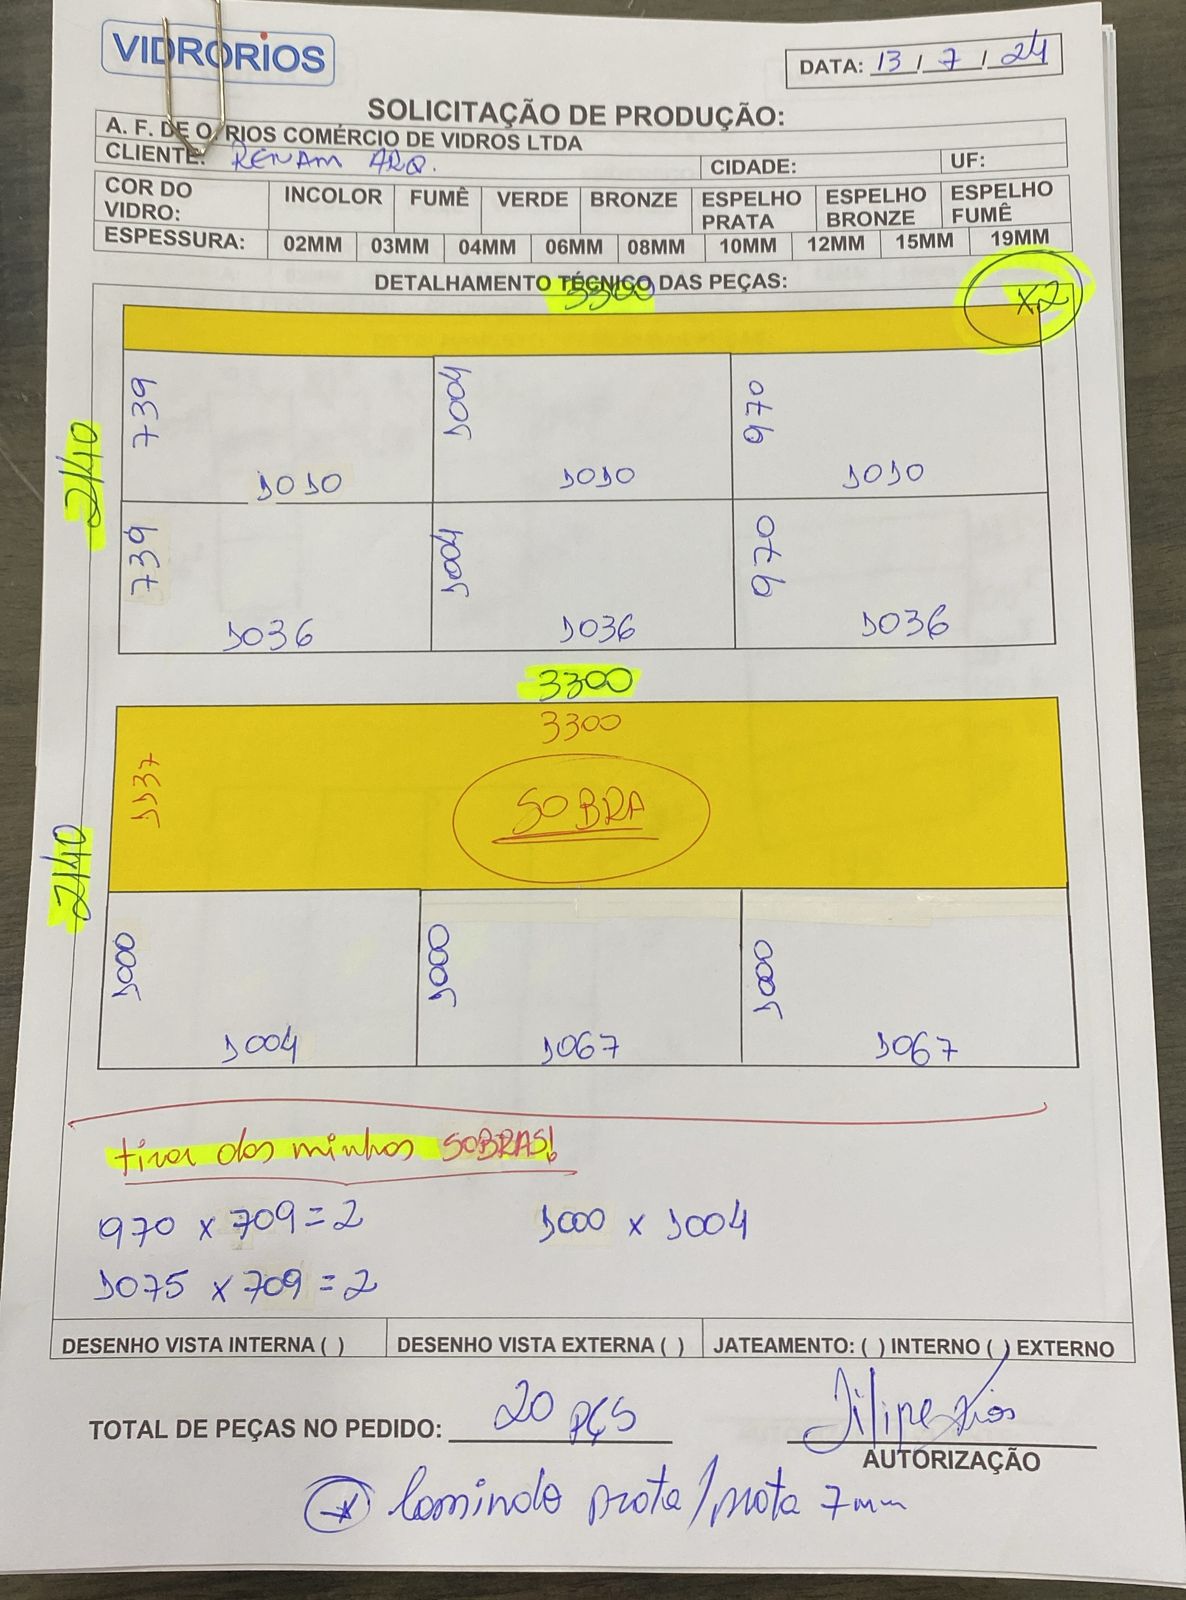 VIDRORIOS
DATA: 13 / 7 / 24
SOLICITAÇÃO DE PRODUÇÃO:
A. F. DE O. RIOS COMÉRCIO DE VIDROS LTDA
CLIENTE: RENAM ARQ. CIDADE: UF:
COR DO VIDRO: INCOLOR FUMÊ VERDE BRONZE ESPELHO PRATA ESPELHO BRONZE ESPELHO FUMÊ
ESPESSURA: 02MM 03MM 04MM 06MM 08MM 10MM 12MM 15MM 19MM
DETALHAMENTO TÉCNICO DAS PEÇAS:
3300
X2
2140
739 1004 970
1010 1010 1010
739 1004 970
1036 1036 1036
3300
3300
1137
SOBRA
2140
1000 1000 1000
1004 1067 1067
tirar das minhas SOBRAS!
970 x 709 = 2 1000 x 1004
1075 x 709 = 2
DESENHO VISTA INTERNA ( ) DESENHO VISTA EXTERNA ( ) JATEAMENTO: ( ) INTERNO ( ) EXTERNO
TOTAL DE PEÇAS NO PEDIDO: 20 PÇS
Filipe Rios
AUTORIZAÇÃO
* laminado prata/prata 7mm